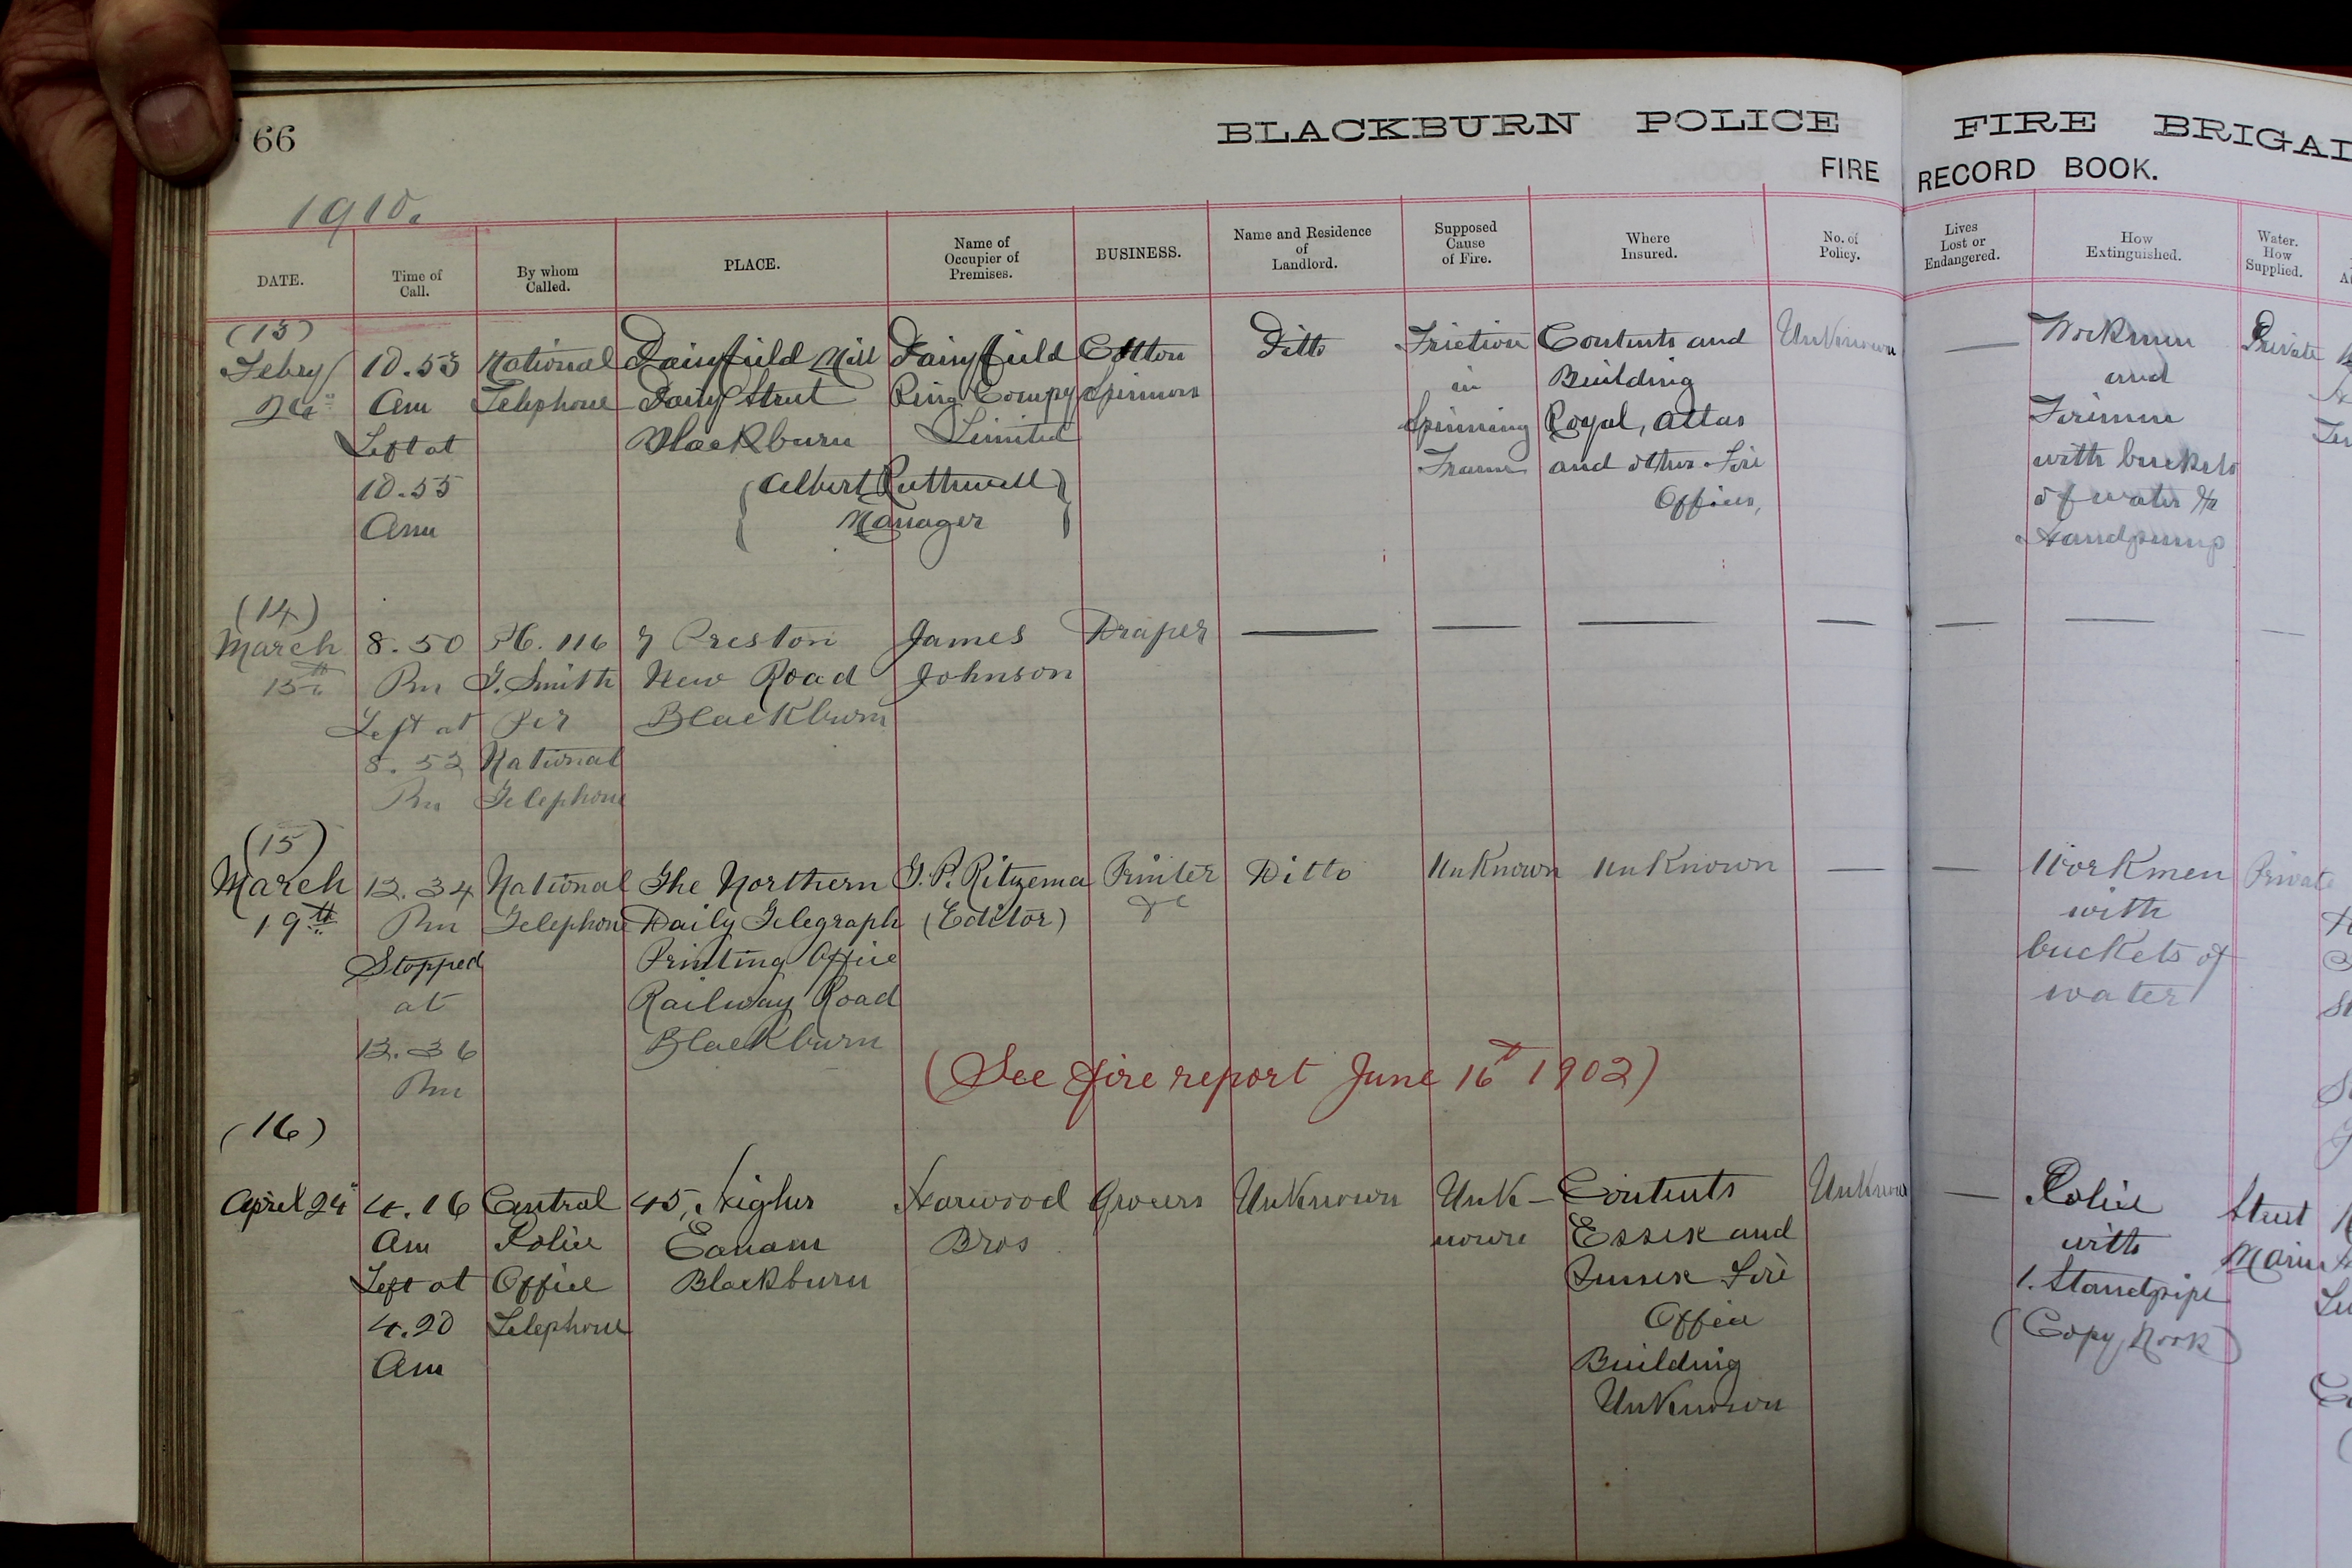 66
BLACKBURN POLICE FIRE BRIGA
FIRE RECORD BOOK.
1910.
DATE.
Time of
Call.
By whom
Called.
PLACE.
Name of
Occupier of
Premises.
BUSINESS.
Name and Residence
of
Landlord.
Supposed
Cause
of Fire.
Where
Insured.
No. of
Policy.
Lives
Lost or
Endangered.
How
Extinguished.
Water.
How
Supplied.
(13)
Febry
10.53
Am
Left at
10.55
Am
National
Telephone
Daisyfield Mill
Daisy Street
Blackburn
Daisyfield
Ring Compy
Limited
(Albert Ruthwell)
Manager
Cotton
Spinners
Ditto
Friction
in
Spinning
Frame
Contents and
Building
Royal, Atlas
and other Fire
Offices,
Unknown
Workmen
and
Firemen
with buckets
of water &
Handpump
Private
(14)
March
15th
8.50
Pm
Left at
8.52
Pm
PC. 116
G. Smith
Per
National
Telephone
7 Preston
New Road
Blackburn
James
Johnson
Draper
(15)
March
19th
12.34
Pm
Stopped
at
12.36
Pm
National
Telephone
The Northern
Daily Telegraph
Printing Office
Railway Road
Blackburn
G. P. Ritzema
(Editor)
Printer
&c
Ditto
Unknown
Unknown
Workmen
with
buckets of
water
Private
(See fire report June 16th 1902)
(16)
April 24"
4.16
Am
Left at
4.20
Am
Central
Police
Office
Telephone
45, Higher
Eanam
Blackburn
Harwood
Bros
Grocers
Unknown
Unk-
nown
Contents
Essex and
Sussex Fire
Office
Building
Unknown
Unknown
Police
with
1. Standpipe
(Copy Nook)
Street
Main